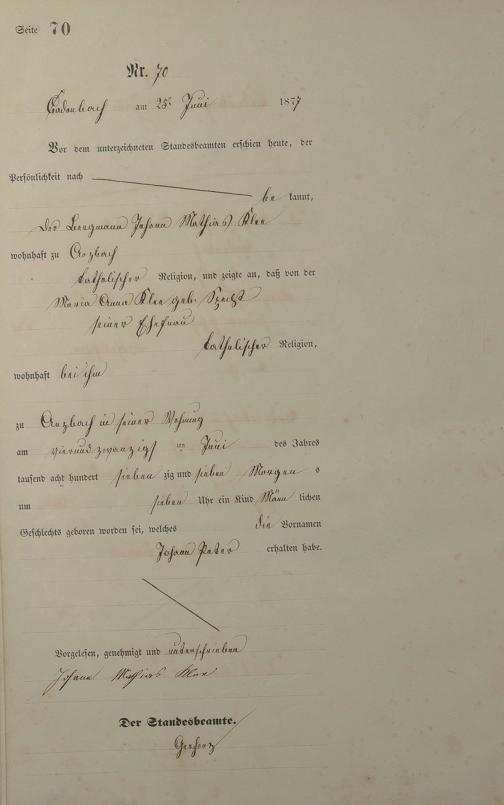 Seite 70
Nr. 70
Cadenbach am 25t Juni 1877
Vor dem unterzeichneten Standesbeamten erschien heute, der
Persönlichkeit nach
be kannt,
der Bergmann Johann Mathias Klee
wohnhaft zu Arzbach
katholischer Religion, und zeigte an, daß von der
Maria Anna Klee geb.
seiner Ehefrau
katholischer Religion,
wohnhaft bei ihm
zu Arzbach in seiner Wohnung
am vierundzwanzigst en Juni des Jahres
tausend acht hundert sieben zig und sieben Morgen s
um sieben Uhr ein Kind Männ lichen
Geschlechts geboren worden sei, welches die Vornamen
Johann Peter erhalten habe.
Vorgelesen, genehmigt und unterschrieben
Johann Mathias Klee
Der Standesbeamte.
Gerharz